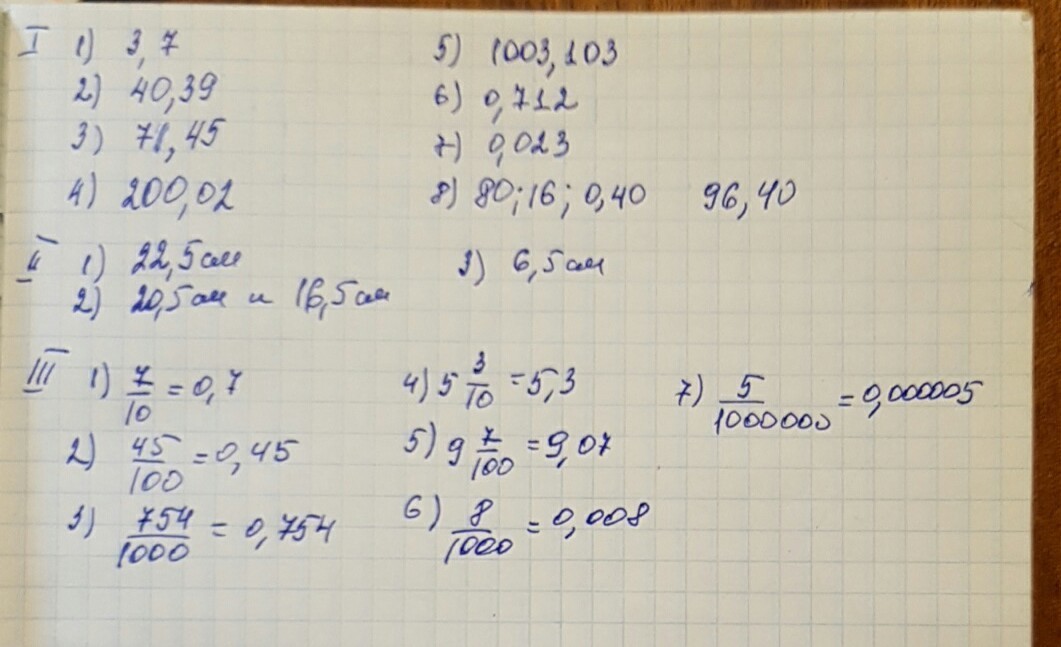 I 1) 3,7 5) 1003,103
2) 40,39 6) 0,712
3) 71,45 7) 0,023
4) 200,02 8) 80; 16; 0,40 96,40
II 1) 22,5 см 3) 6,5 см
2) 20,5 см и 16,5 см
III 1) 7/10 = 0,7 4) 5 3/10 = 5,3 7) 5/1000000 = 0,000005
2) 45/100 = 0,45 5) 9 7/100 = 9,07
3) 754/1000 = 0,754 6) 8/1000 = 0,008